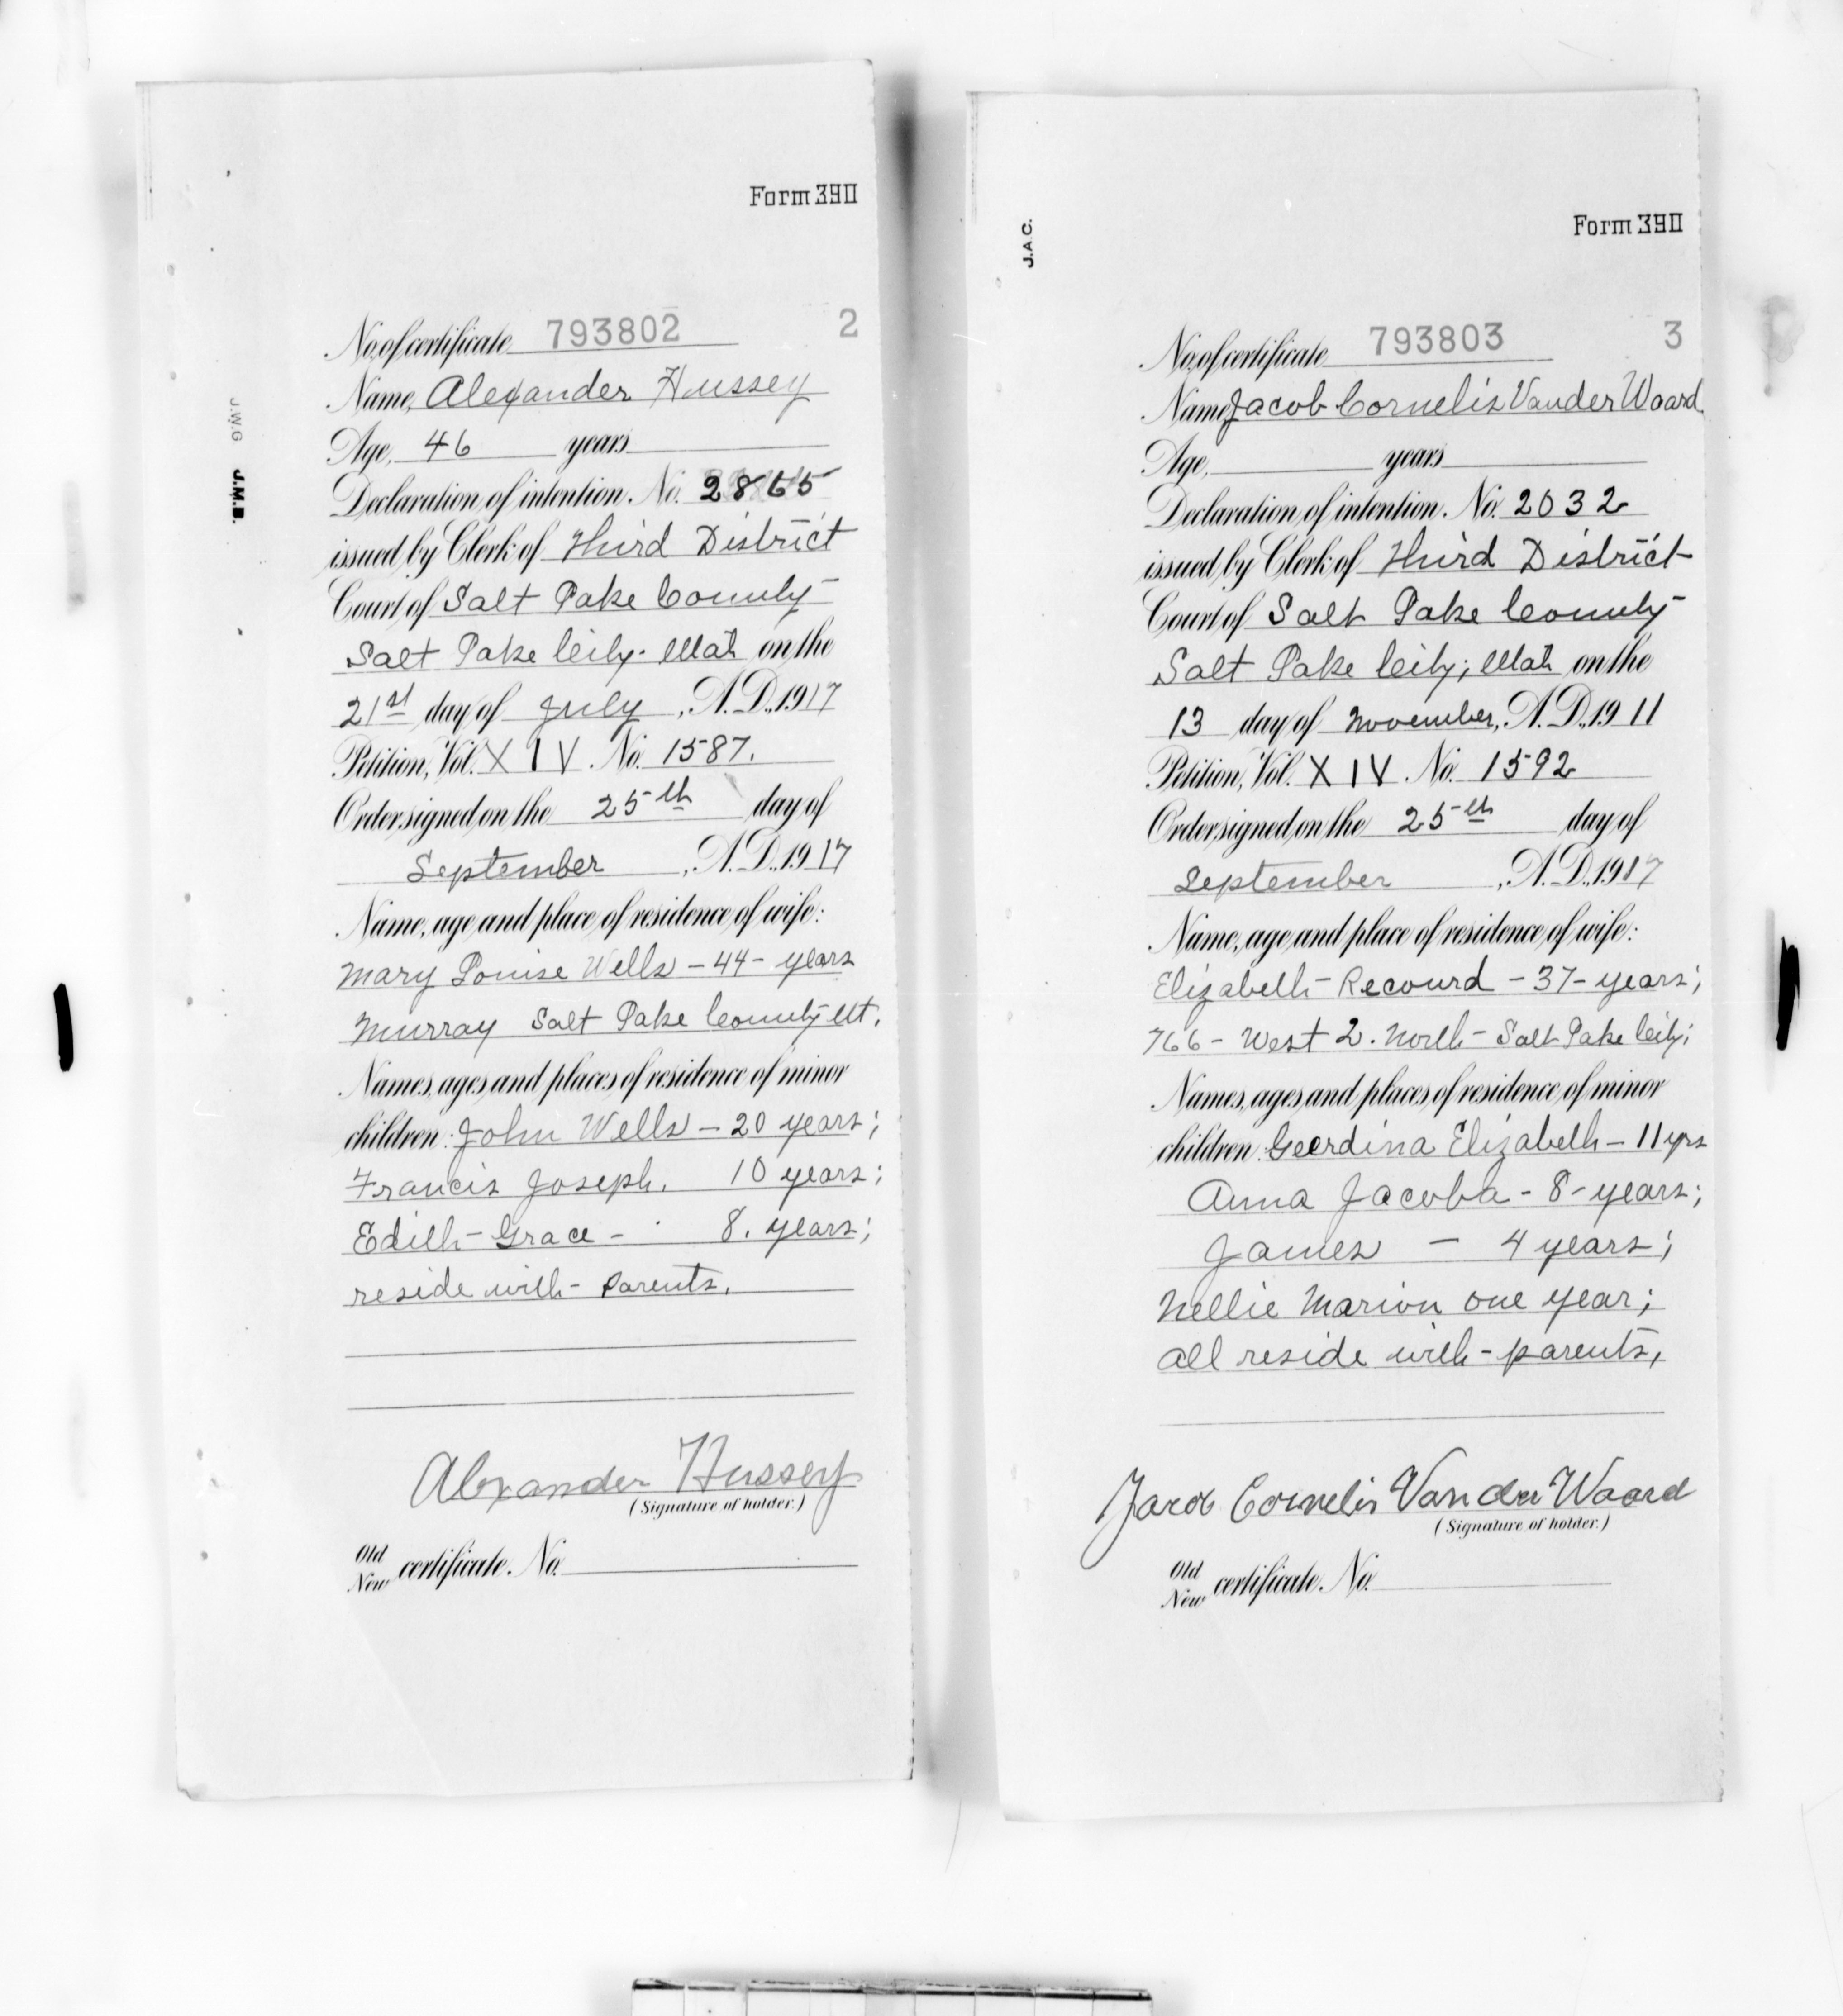 Form 390
No. of certificate 793802 2
Name, Alexander Hussey
Age, 46 years
J.W.G J.M.B.
Declaration of intention. No. 2865
issued by Clerk of Third District
Court of Salt Lake County
Salt Lake City. Utah on the
21st day of July, A.D. 1917
Petition, Vol. XIV. No. 1587.
Order signed on the 25th day of
September, A.D. 1917
Name, age and place of residence of wife:
Mary Louise Wells - 44 - years
Murray Salt Lake County Ut.
Names, ages and places of residence of minor
children: John Wells - 20 years;
Francis Joseph. 10 years;
Edith - Grace - 8. years;
reside with - parents.
Alexander Hussey
(Signature of holder.)
Old
New certificate. No.
Form 390
J.A.C.
No. of certificate 793803 3
Name, Jacob Cornelis Vander Waard
Age, years
Declaration of intention. No. 2032
issued by Clerk of Third District
Court of Salt Lake County
Salt Lake City; Utah on the
13 day of November, A.D. 1911
Petition, Vol. XIV. No. 1592
Order signed on the 25th day of
September, A.D. 1917
Name, age and place of residence of wife:
Elizabeth - Recourd - 37 - years;
766 - West 2. North - Salt Lake City;
Names, ages and places of residence of minor
children: Geerdina Elizabeth - 11 yrs
Anna Jacoba - 8 - years;
James - 4 years;
Nellie Marion one year;
all reside with - parents,
Jacob Cornelis Van der Waard
(Signature of holder.)
Old
New certificate. No.